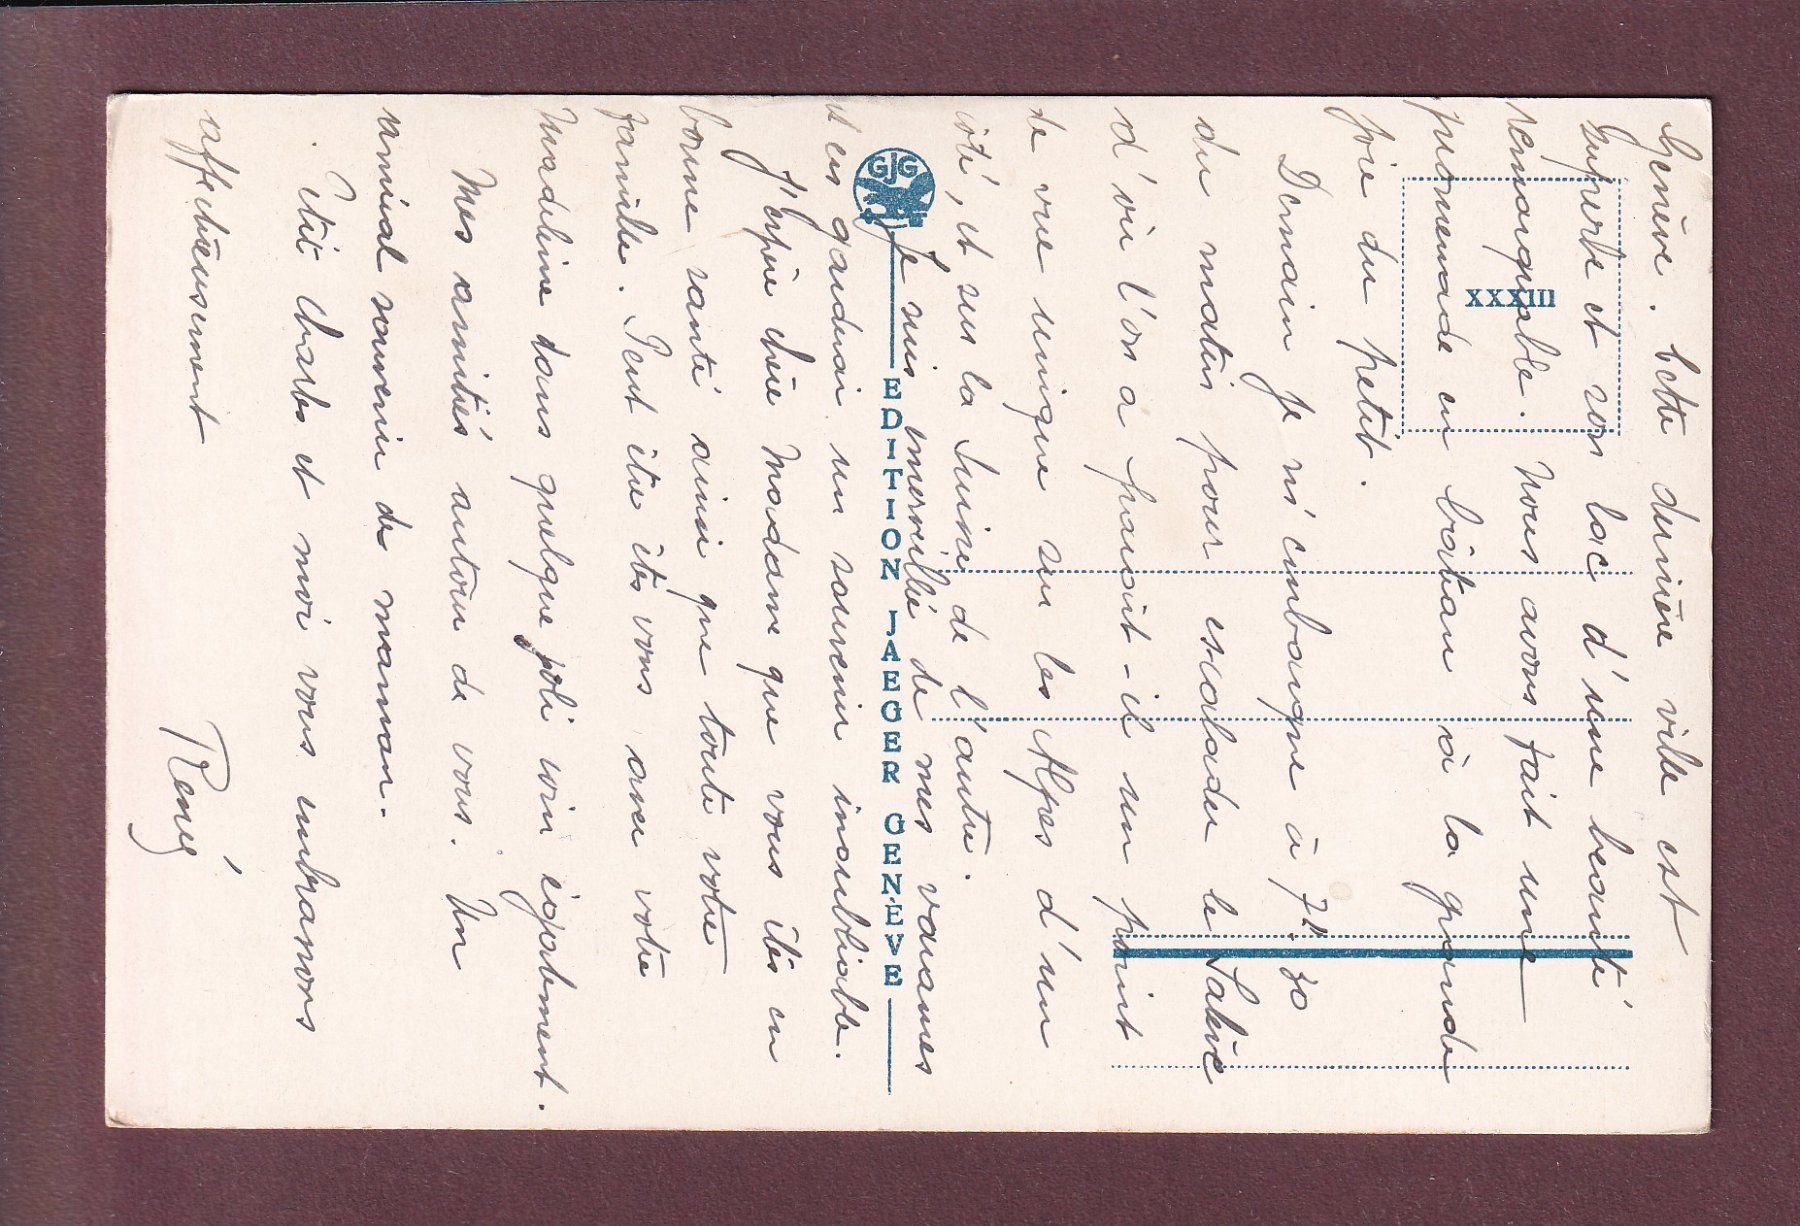 Genève. Cette dernière ville est
superbe et son lac d'une beauté
remarquable. Nous avons fait une
promenade en bâteau à la grande
joie du petit.
Demain je m'embarque à 7h. 30
du matin pour escalader le Salève
d'où l'on a parait-il un point
de vue unique sur les Alpes d'un
côté, et sur la Suisse de l'autre.
Je suis émerveillé de mes vacances
et en garderai un souvenir inoubliable.
J'espère chère Madame que vous êtes en
bonne santé ainsi que toute votre
famille. Peut être êtes vous avec votre
Madeleine dans quelque joli coin également.
Mes amitiés autour de vous. Un
amical souvenir de maman.
Petit Charles et moi vous embrassons
affectueusement
René
XXXIII
GJG
EDITION JAEGER GENÈVE